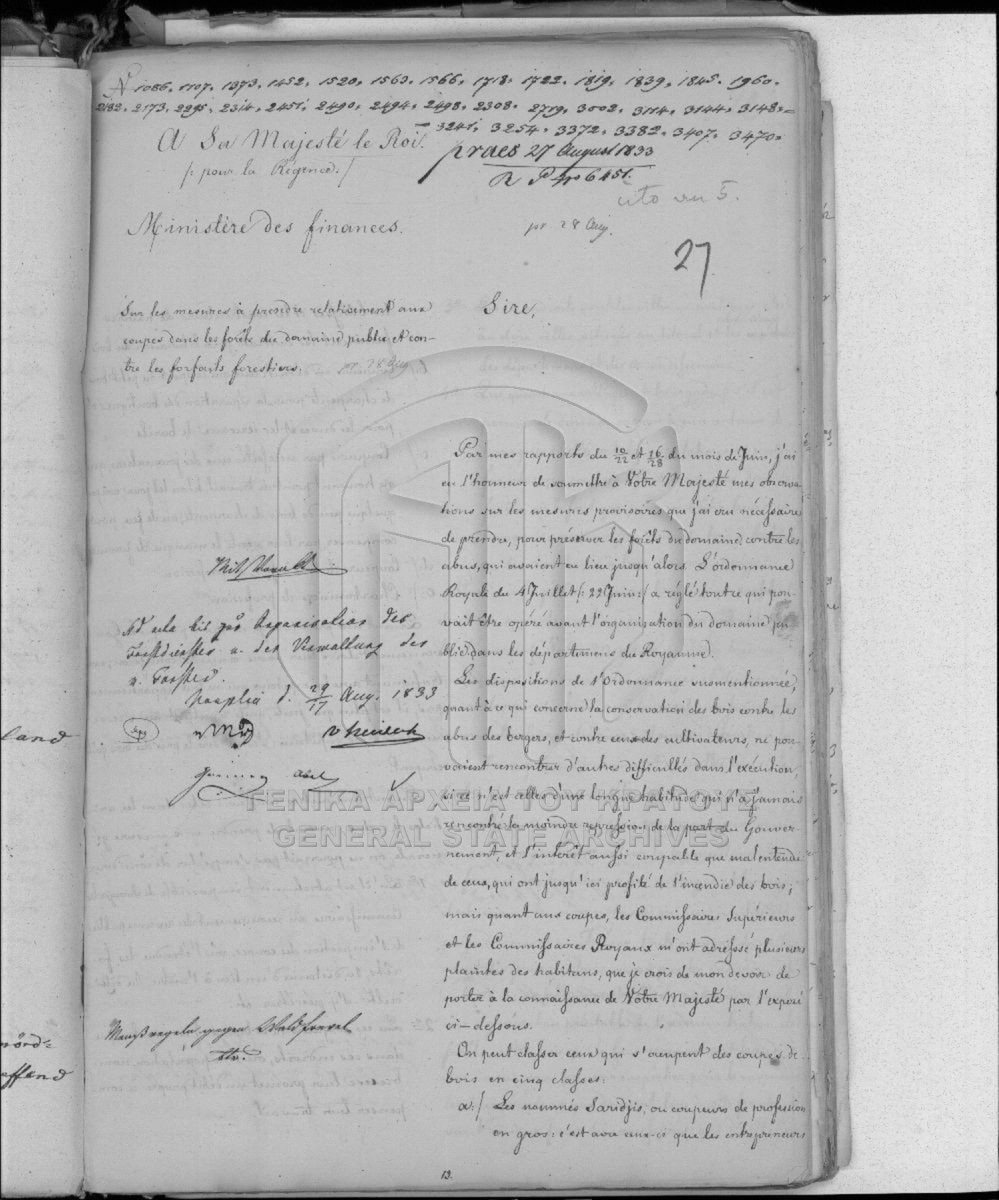 N 1086, 1107, 1373, 1452, 1520, 1563, 1566, 1718, 1722, 1819, 1839, 1845, 1960,
2173, 2295, 2314, 2451, 2490, 2494, 2498, 2508, 2719, 3002, 3114, 3144, 3148,=
=3241, 3254, 3372, 3382, 3407, 3470,
A Sa Majesté le Roi.
/: pour la Régence :/
praes 27 August 1833
6451.
cito 5.
Ministère des finances.
pr 28 Aug.
27
Sur les mesures à prendre relativement aux
coupes dans les forêts du domaine public et con-
tre les forfaits forestiers.
pr 28 Aug
Sire,
Par mes rapports du 10/22 et 16/28 du mois de Juin, j'ai
eu l'honneur de soumettre à Votre Majesté mes observa-
tions sur les mesures provisoires que j'ai cru nécessaire
de prendre, pour préserver les forêts du domaine contre les
abus, qui avaient eu lieu jusqu'alors. L'ordonnance
Royale du 4 Juillet /: 22 Juin :/ a réglé toutre qui pou-
vait être opéré avant l'organisation du domaine pu-
blic dans les départemens du Royaume.
Les dispositions de l'Ordonnance susmentionnée,
quant à ce qui concerne la conservation des bois contre les
abus des bergers, et contre ceux des cultivateurs, ne pou-
vaient rencontrer d'autres difficultés dans l'exécution
si ce n'est celles d'une longue habitude qui n'a jamais
rencontré la moindre repression de la part du Gouver-
nement, et l'intérêt aussi coupable que malentendu
de ceux, qui ont jusqu'ici profité de l'incendie des bois;
mais quant aux coupes, les Commissaires Supérieurs
et les Commissaires Royaux m'ont adressé plusieurs
plaintes des habitans, que je crois de mon devoir de
porter à la connaissance de Votre Majesté par l'exposé
ci-dessous.
On peut classer ceux qui s'occupent des coupes de
bois en cinq classes:
a:/ Les nommés Saridjis, ou coupeurs de profession
en gros: c'est avec ceux-ci que les entrepreneurs
Ad acta bis zur Organisation des
Forstdienstes u. der Verwaltung der
Nauplia d. 29/17 Aug. 1833
Maaßregeln gegen Waldfrevel
ΓΕΝΙΚΑ ΑΡΧΕΙΑ ΤΟΥ ΚΡΑΤΟΥΣ
GENERAL STATE ARCHIVES
land
effend
12.